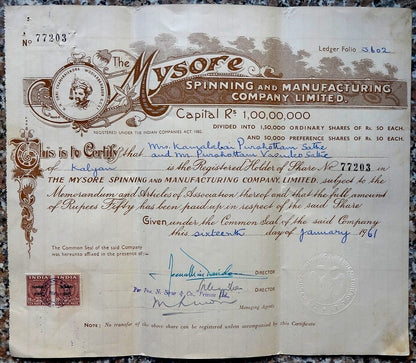 No 77203
Ledger Folio S602
The Mysore
SPINNING AND MANUFACTURING
COMPANY LIMITED.
Capital Rs 1,00,00,000
REGISTERED UNDER THE INDIAN COMPANIES ACT, 1882.
DIVIDED INTO 1,50,000 ORDINARY SHARES OF RS. 50 EACH.
AND 50,000 PREFERENCE SHARES OF RS. 50 EACH.
This is to Certify that Mrs. Kamalabai Purshottam
and Mr. Purshottam Vasudeo
of Kalyan is the Registered Holder of Share No 77203 IN
THE MYSORE SPINNING AND MANUFACTURING COMPANY, LIMITED, subject to the
Memorandum and Articles of Association thereof and that the full amount
of Rupees Fifty has been paid up in respect of the said Share
Given under the Common Seal of the said Company
this sixteenth day of January 1961
The Common Seal of the said company
was hereunto affixed in the presence of:—
DIRECTOR
DIRECTOR
INDIA INDIA
Per Pro. N. Sirur & Co. Private Ltd.
Managing Agents
NOTE: No transfer of the above share can be registered unless accompanied by this Certificate